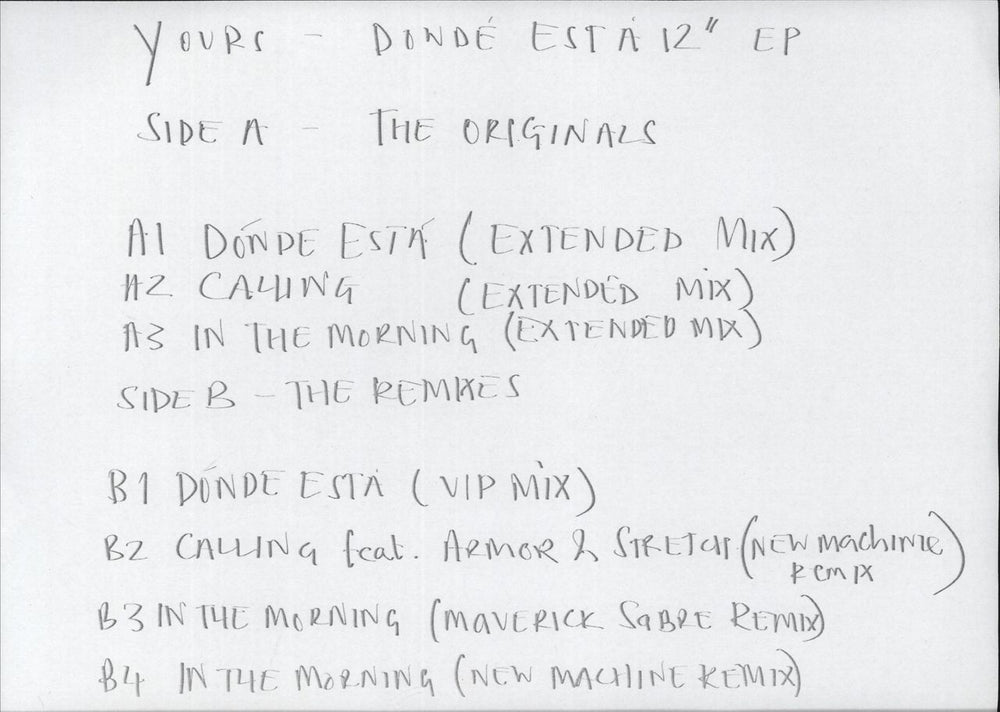 YOURS - DONDÉ ESTÁ 12" EP
SIDE A - THE ORIGINALS
A1 DÓNDE ESTÁ (EXTENDED MIX)
A2 CALLING (EXTENDED MIX)
A3 IN THE MORNING (EXTENDED MIX)
SIDE B - THE REMIXES
B1 DÓNDE ESTÁ (VIP MIX)
B2 CALLING feat. ARMOR & STRETCH (NEW MACHINE
REMIX)
B3 IN THE MORNING (MAVERICK SABRE REMIX)
B4 IN THE MORNING (NEW MACHINE REMIX)